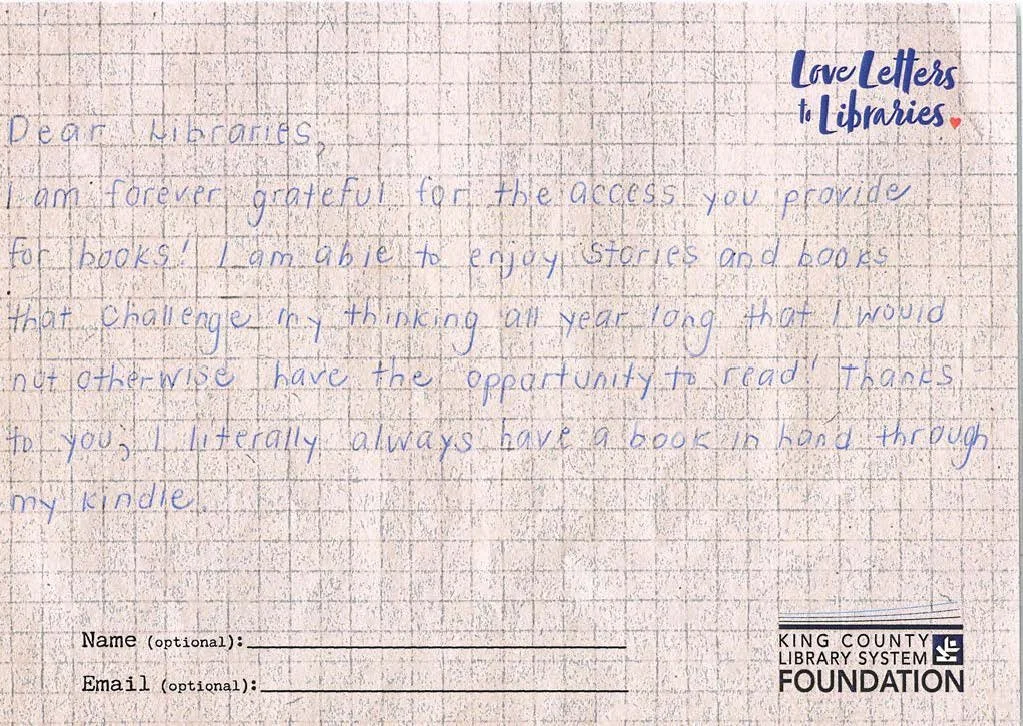 Love Letters
to Libraries
Dear Libraries,
I am forever grateful for the access you provide
for books! I am able to enjoy stories and books
that challenge my thinking all year long that I would
not otherwise have the opportunity to read! Thanks
to you, I literally always have a book in hand through
my kindle.
Name (optional):
Email (optional):
KING COUNTY
LIBRARY SYSTEM
FOUNDATION